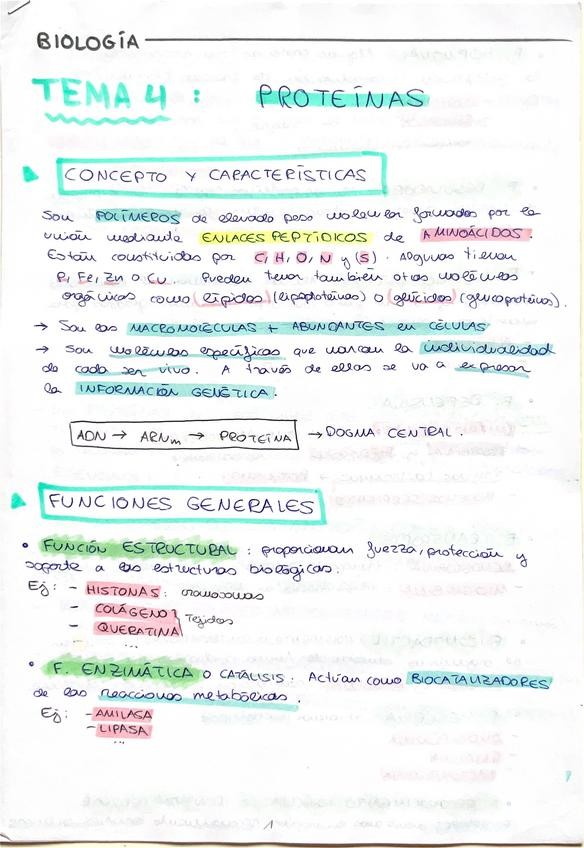 BIOLOGÍA
TEMA 4 : PROTEÍNAS
CONCEPTO Y CARACTERÍSTICAS
Son POLÍMEROS de elevado peso molecular formados por la
unión mediante ENLACES PEPTÍDICOS de AMINOÁCIDOS.
Están constituidas por C, H, O, N y (S). Algunas tienen
P, Fe, Zn o Cu. Pueden tener también otras moléculas
orgánicas como lípidos (lipoproteínas) o glúcidos (glucoproteínas).
→ Son las MACROMOLÉCULAS + ABUNDANTES en CÉLULAS
→ Son moléculas específicas que marcan la individualidad
de cada ser vivo. A través de ellas se va a expresar
la INFORMACIÓN GENÉTICA.
ADN → ARNm → PROTEÍNA → DOGMA CENTRAL.
FUNCIONES GENERALES
• FUNCIÓN ESTRUCTURAL : proporcionan fuerza, protección y
soporte a las estructuras biológicas.
Ej: - HISTONAS: cromosomas
- COLÁGENO } Tejidos
- QUERATINA
...
• F. ENZIMÁTICA O CATÁLISIS. Actúan como BIOCATALIZADORES
de las reacciones metabólicas.
Ej: - AMILASA
- LIPASA
...
1